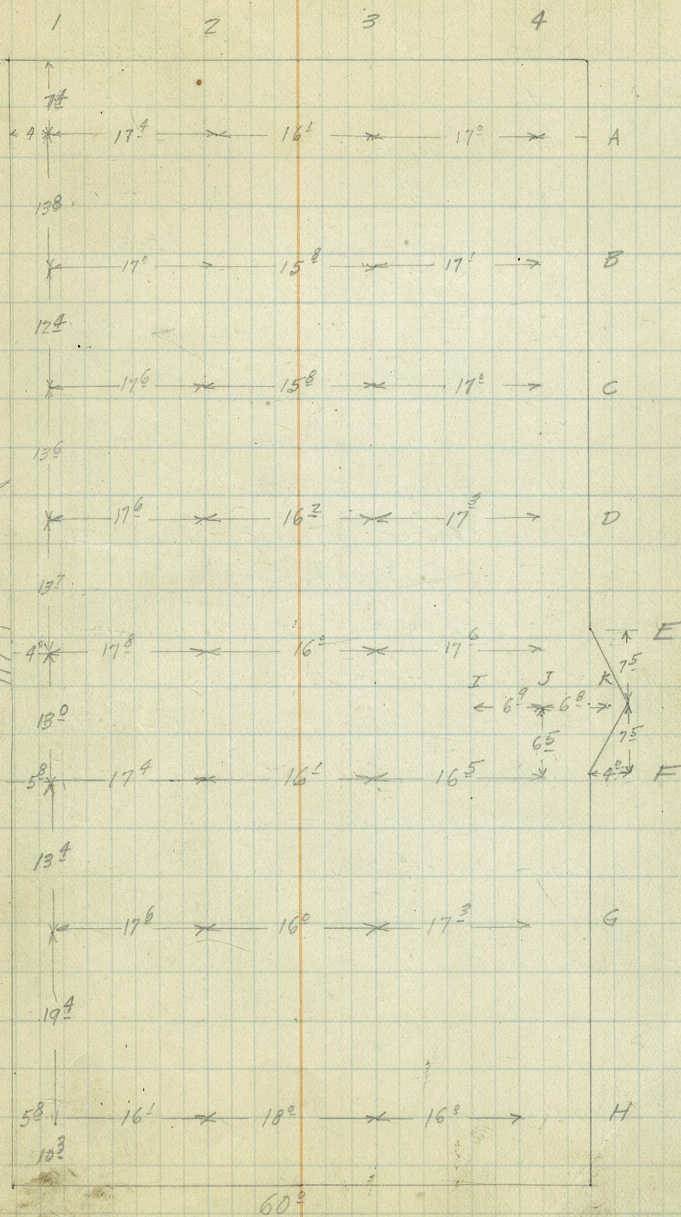 1 2 3 4
7 4
4 17 4 16 1 17 0 A
13 8
17 0 15 8 17 1 B
12 4
17 6 15 8 17 0 C
13 6
17 6 16 2 17 3 D
13 7
E
4 0 17 8 16 0 17 6
7 5
I J K
6 9 6 8
13 0
6 5 7 5
5 8 17 4 16 1 16 5 4 0 F
13 4
17 6 16 0 17 3 G
19 4
5 8 16 1 18 0 16 8 H
10 3
60 0